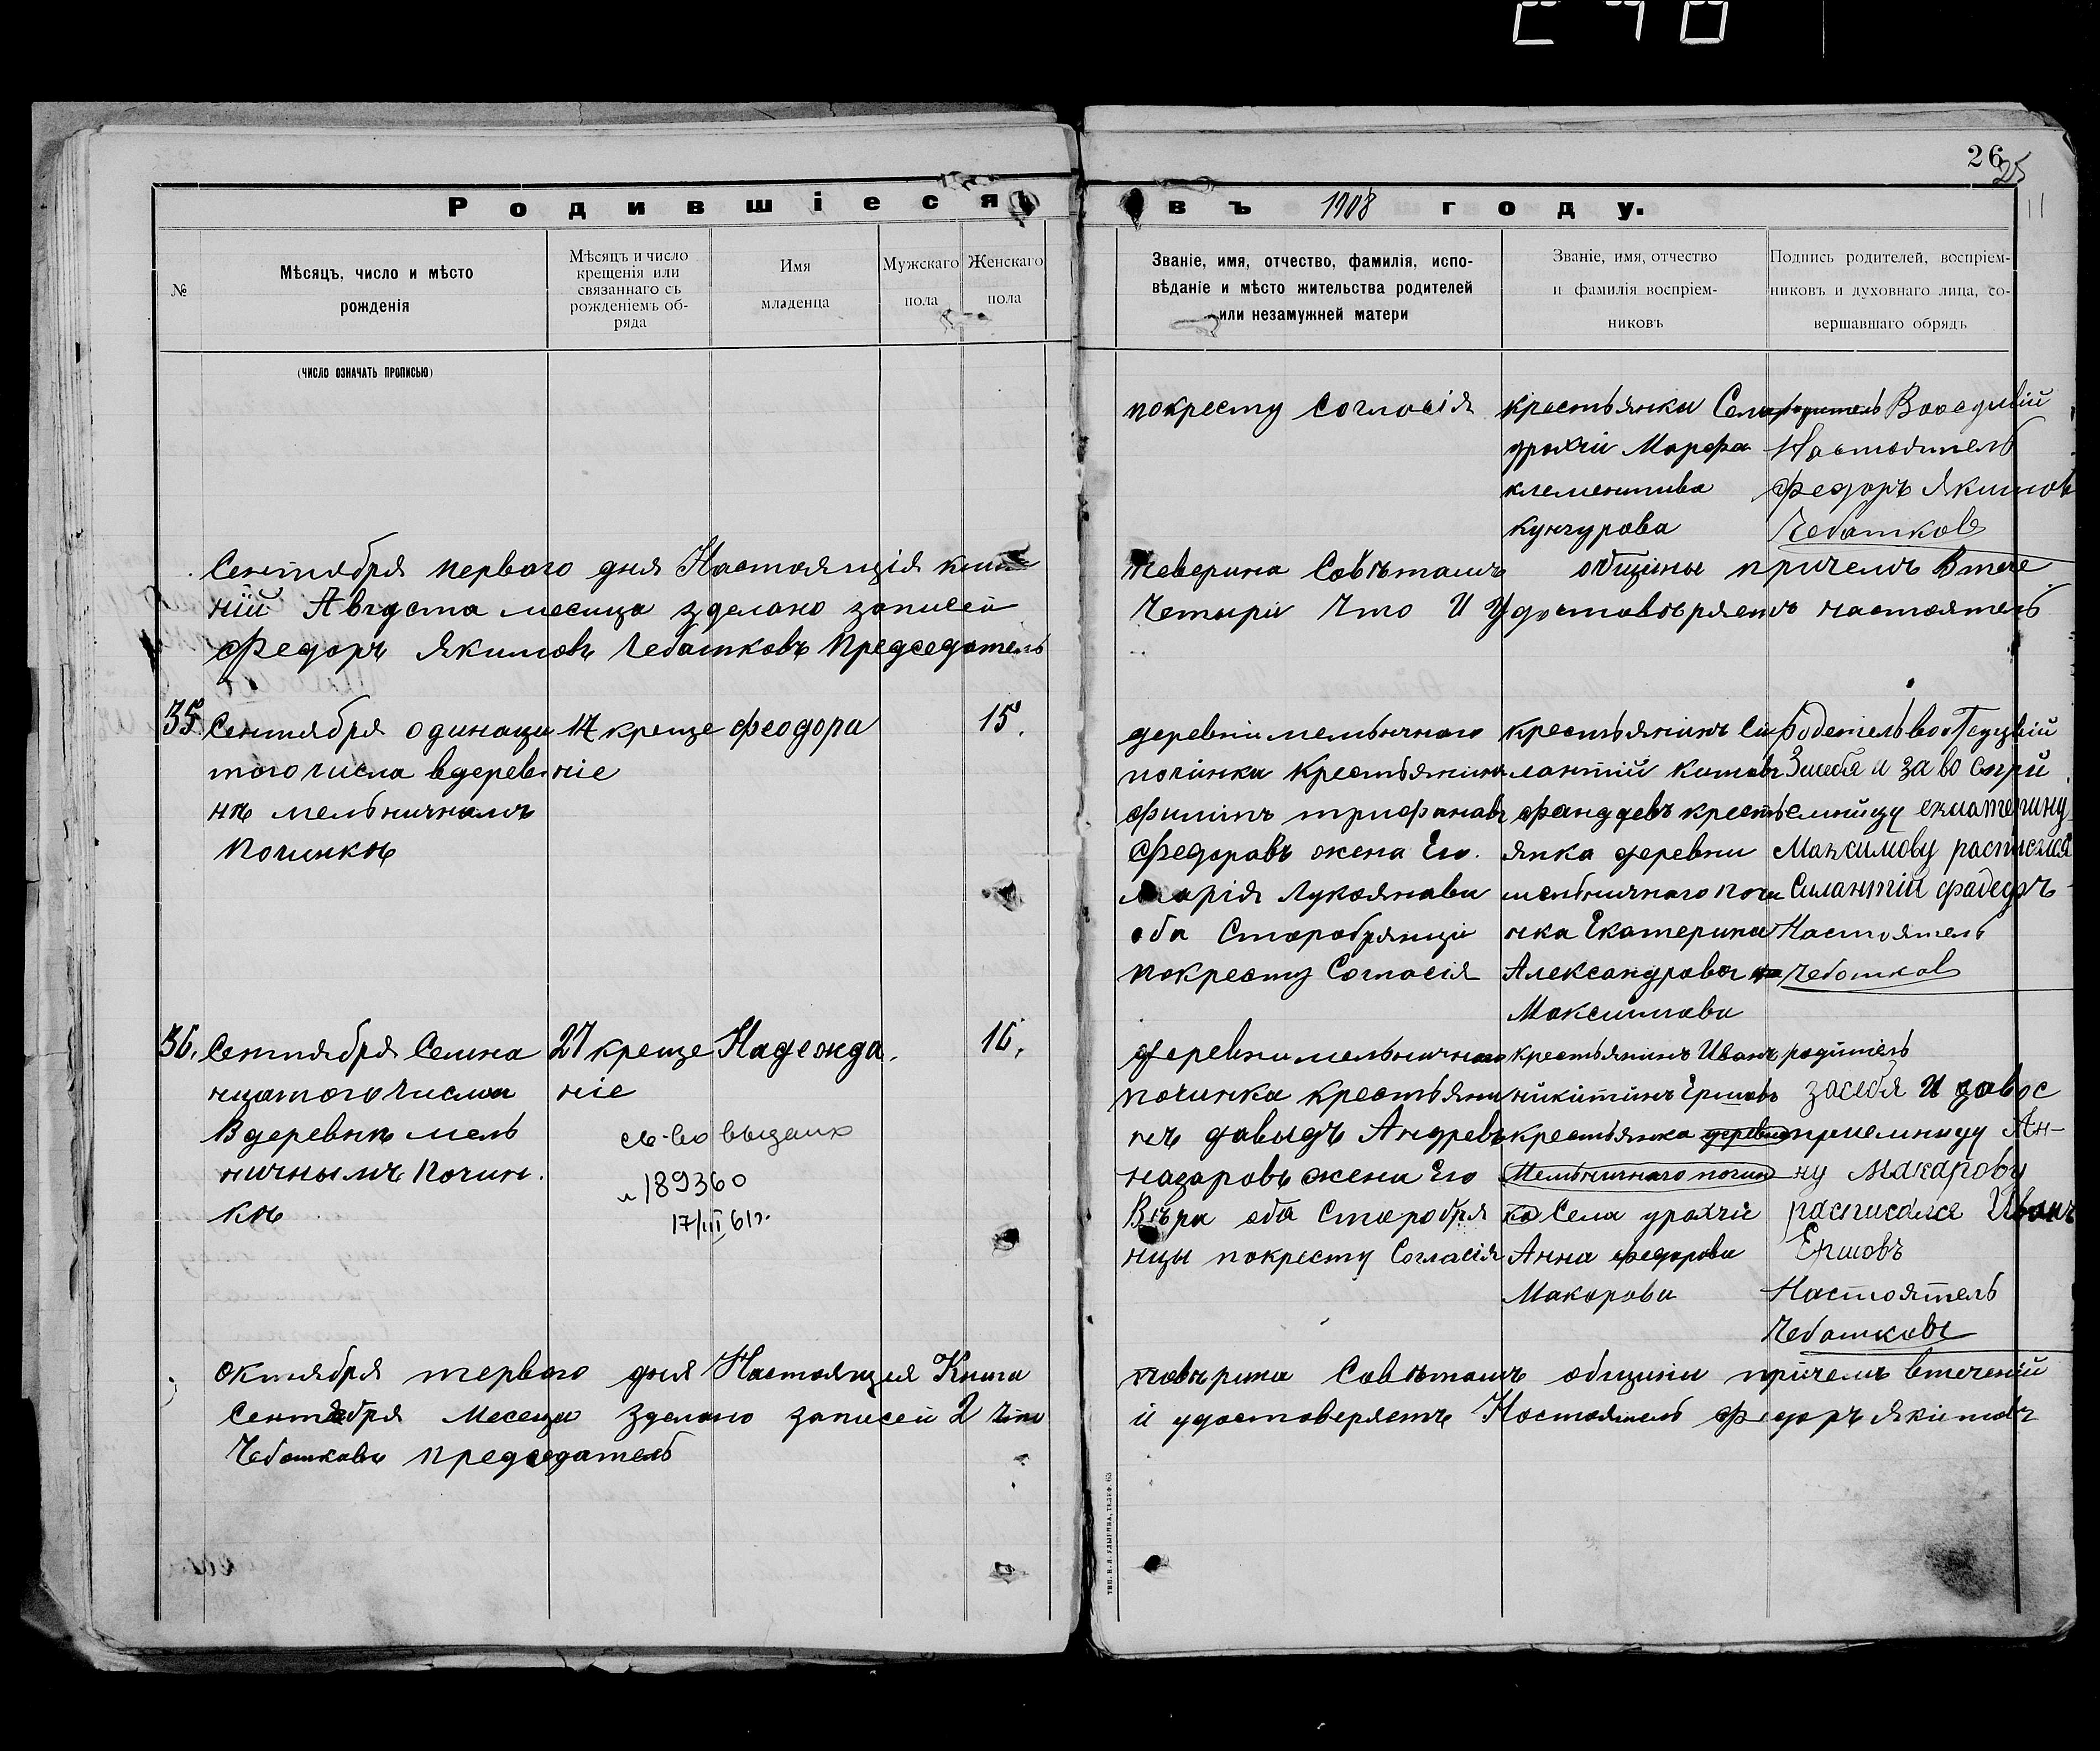 26
25
Родившіеся
въ 1908 году.
№
Мѣсяцъ, число и мѣсто
рожденія
(число означать прописью)
Мѣсяцъ и число
крещенія или
связаннаго съ
рожденіемъ об-
ряда
Имя
младенца
Мужскаго
пола
Женскаго
пола
Званіе, имя, отчество, фамилія, испо-
вѣданіе и мѣсто жительства родителей
или незамужней матери
Званіе, имя, отчество
и фамилія воспріем-
никовъ
Подпись родителей, воспріем-
никовъ и духовнаго лица, со-
вершавшаго обрядъ
покресту Согласія
крестьянка Села
Марфа
клементива
кунгурова
родитель
Настоятель
Федоръ Якимов
Чебатков
Сентября первого дня Настоящія
ній Августа месица зделано записей
Федоръ Якимовъ Чебатковъ Председатель
Совѣтамъ общины причемъ Втече
Четыри Что И Удостовѣряетъ настоятель
35
Сентября одинаца
того числа вдерев
нѣ мельничнамъ
Починкѣ
14 креще
ніе
Феодора
15.
деревни мельнчного
починка Крестьянинъ
филипъ трифанавъ
Федоравъ жена Его
Марія Лукоянава
оба Старобрянци
покресту Согласія
крестьянинъ Си
лантій китавъ
фаддевъ кресть
янка деревни
мельничного почи
нка Екатерина
Александрова
Максимова
Засебя и за во спри
емницу екматерину
Максимову расписался
Силантій фадеевъ
Настоятель
Чебатков
36.
Сентября Семна
нцатого Числа
Вдеревнѣ мель
ничнымъ Почин
кѣ
27 креще
ніе
Надежда.
16.
св-во выдано
189360
17/III 61г.
деревни мельничного
починка крестьяни
нъ давыдъ Андревъ
назаровъ жена Его
Вѣра оба Старобря
нцы покресту Согласія
крестьянинъ Иванъ
никитинъ Ершовъ
крестьянка деревни
Мельничнаго почин
ка Села
Анна федорова
Макарова
родитель
засебя и за вос
приемницу Ан-
ну Макарову
расписался Иванъ
Ершовъ
Настоятель
Чебатковъ
октября первого дня Настоящия Книга
Сентебря Месеца зделано записей 2 Что
Чебатковъ председатель
Совѣтамъ общини причемъ втеченій
й удостоверяетъ Настоятель Федоръ Якимовъ